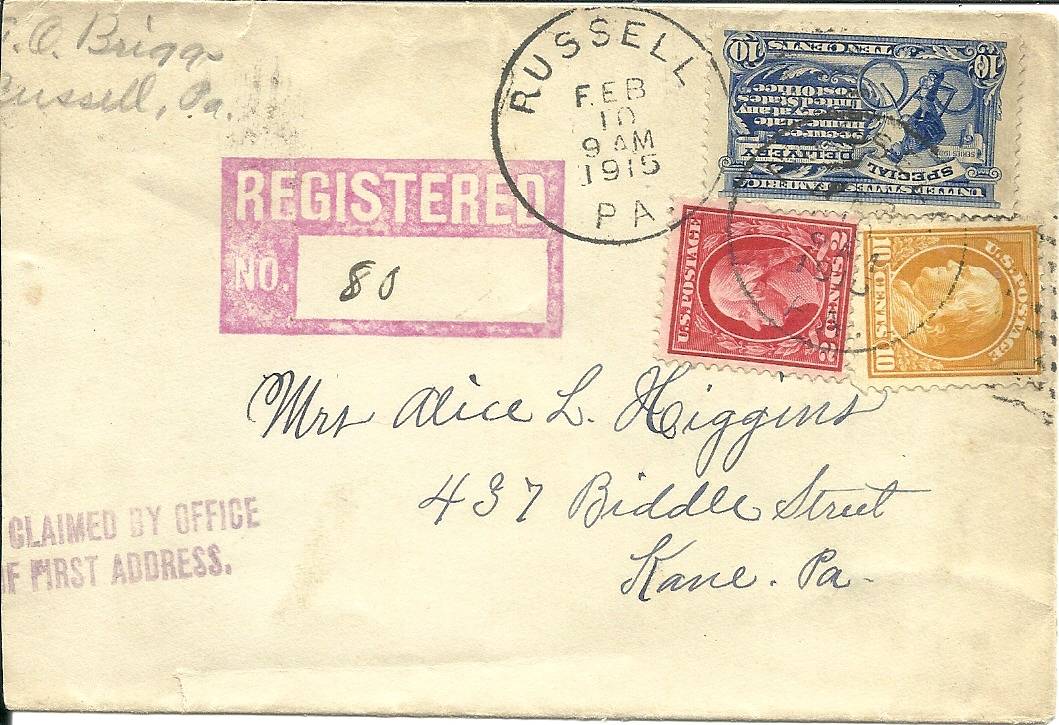 O. Briggs
Russell, Pa.
RUSSELL
FEB
10
9 AM
1915
PA
REGISTERED
NO. 80
10 TEN CENTS 10
UNITED STATES OF AMERICA
SPECIAL DELIVERY
Secures
Immediate
Delivery at any
United States
Post Office
U.S. POSTAGE
2 CENTS 2
U.S. POSTAGE
10 CENTS 10
Mrs Alice L. Higgins
437 Biddle Street
Kane. Pa.
CLAIMED BY OFFICE
OF FIRST ADDRESS.